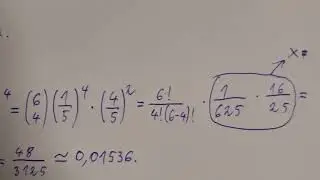 X *
4 = (6 4) (1/5)^4 · (4/5)^2 = 6!/4!(6-4)! · 1/625 · 16/25 =
= 48/3125 ≃ 0,01536.